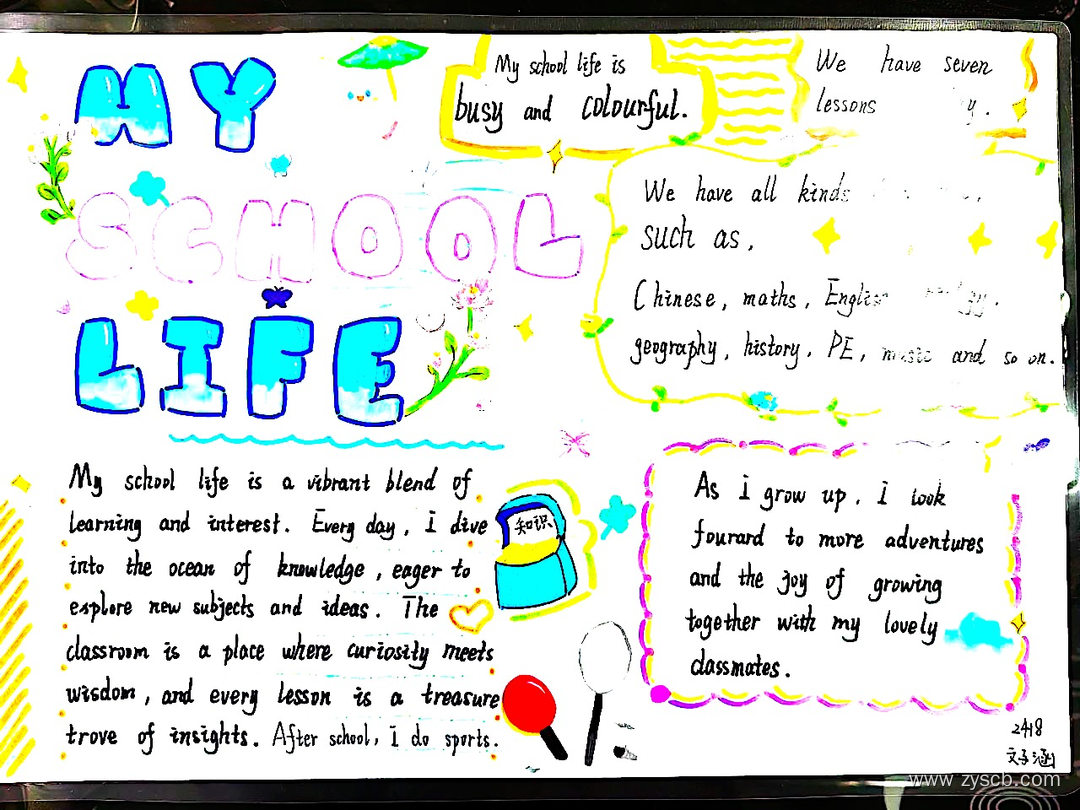 MY
SCHOOL
LIFE
My school life is
busy and colourful.
We have seven
lessons
We have all kinds
such as,
Chinese, maths, English
geography, history, PE, music and so on.
My school life is a vibrant blend of
learning and interest. Every day, i dive
into the ocean of knowledge, eager to
explore new subjects and ideas. The
classroom is a place where curiosity meets
wisdom, and every lesson is a treasure
trove of insights. After school, i do sports.
知识
As i grow up, i look
fourard to more adventures
and the joy of growing
together with my lovely
classmates.
2418
www.zyscb.com